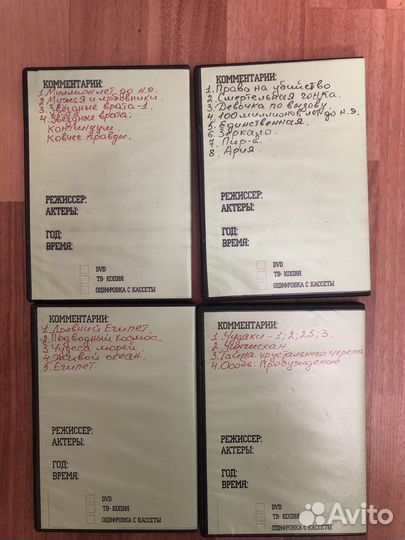 КОММЕНТАРИИ:
1. Миллион лет до н.э.
2. Мужья и любовники.
3. Звёздные врата-1.
4. Звёздные врата:
Континуум.
Ковчег Правды.
РЕЖИССЕР:
АКТЕРЫ:
ГОД:
ВРЕМЯ:
DVD
ТВ- КОПИЯ
ОЦИФРОВКА С КАССЕТЫ
КОММЕНТАРИИ:
1. Право на убийство
2. Смертельная гонка.
3. Девочка по вызову.
4. 100 миллионов лет до н.э.
5. Единственная.
6. Зеркало.
7. Пир-а.
8. Ария.
РЕЖИССЕР:
АКТЕРЫ:
ГОД:
ВРЕМЯ:
DVD
ТВ- КОПИЯ
ОЦИФРОВКА С КАССЕТЫ
КОММЕНТАРИИ:
1. Древний Египет.
2. Подводный космос.
3. Чудеса морей
4. Живой океан.
5. Египет.
РЕЖИССЕР:
АКТЕРЫ:
ГОД:
ВРЕМЯ:
DVD
ТВ- КОПИЯ
ОЦИФРОВКА С КАССЕТЫ
КОММЕНТАРИИ:
1. Чудаки - 1; 2; 2,5; 3.
2. Чингисхан.
3. Тайна хрустального черепа
4. Особь: Пробуждение
РЕЖИССЕР:
АКТЕРЫ:
ГОД:
ВРЕМЯ:
DVD
ТВ- КОПИЯ
ОЦИФРОВКА С КАССЕТЫ
Avito